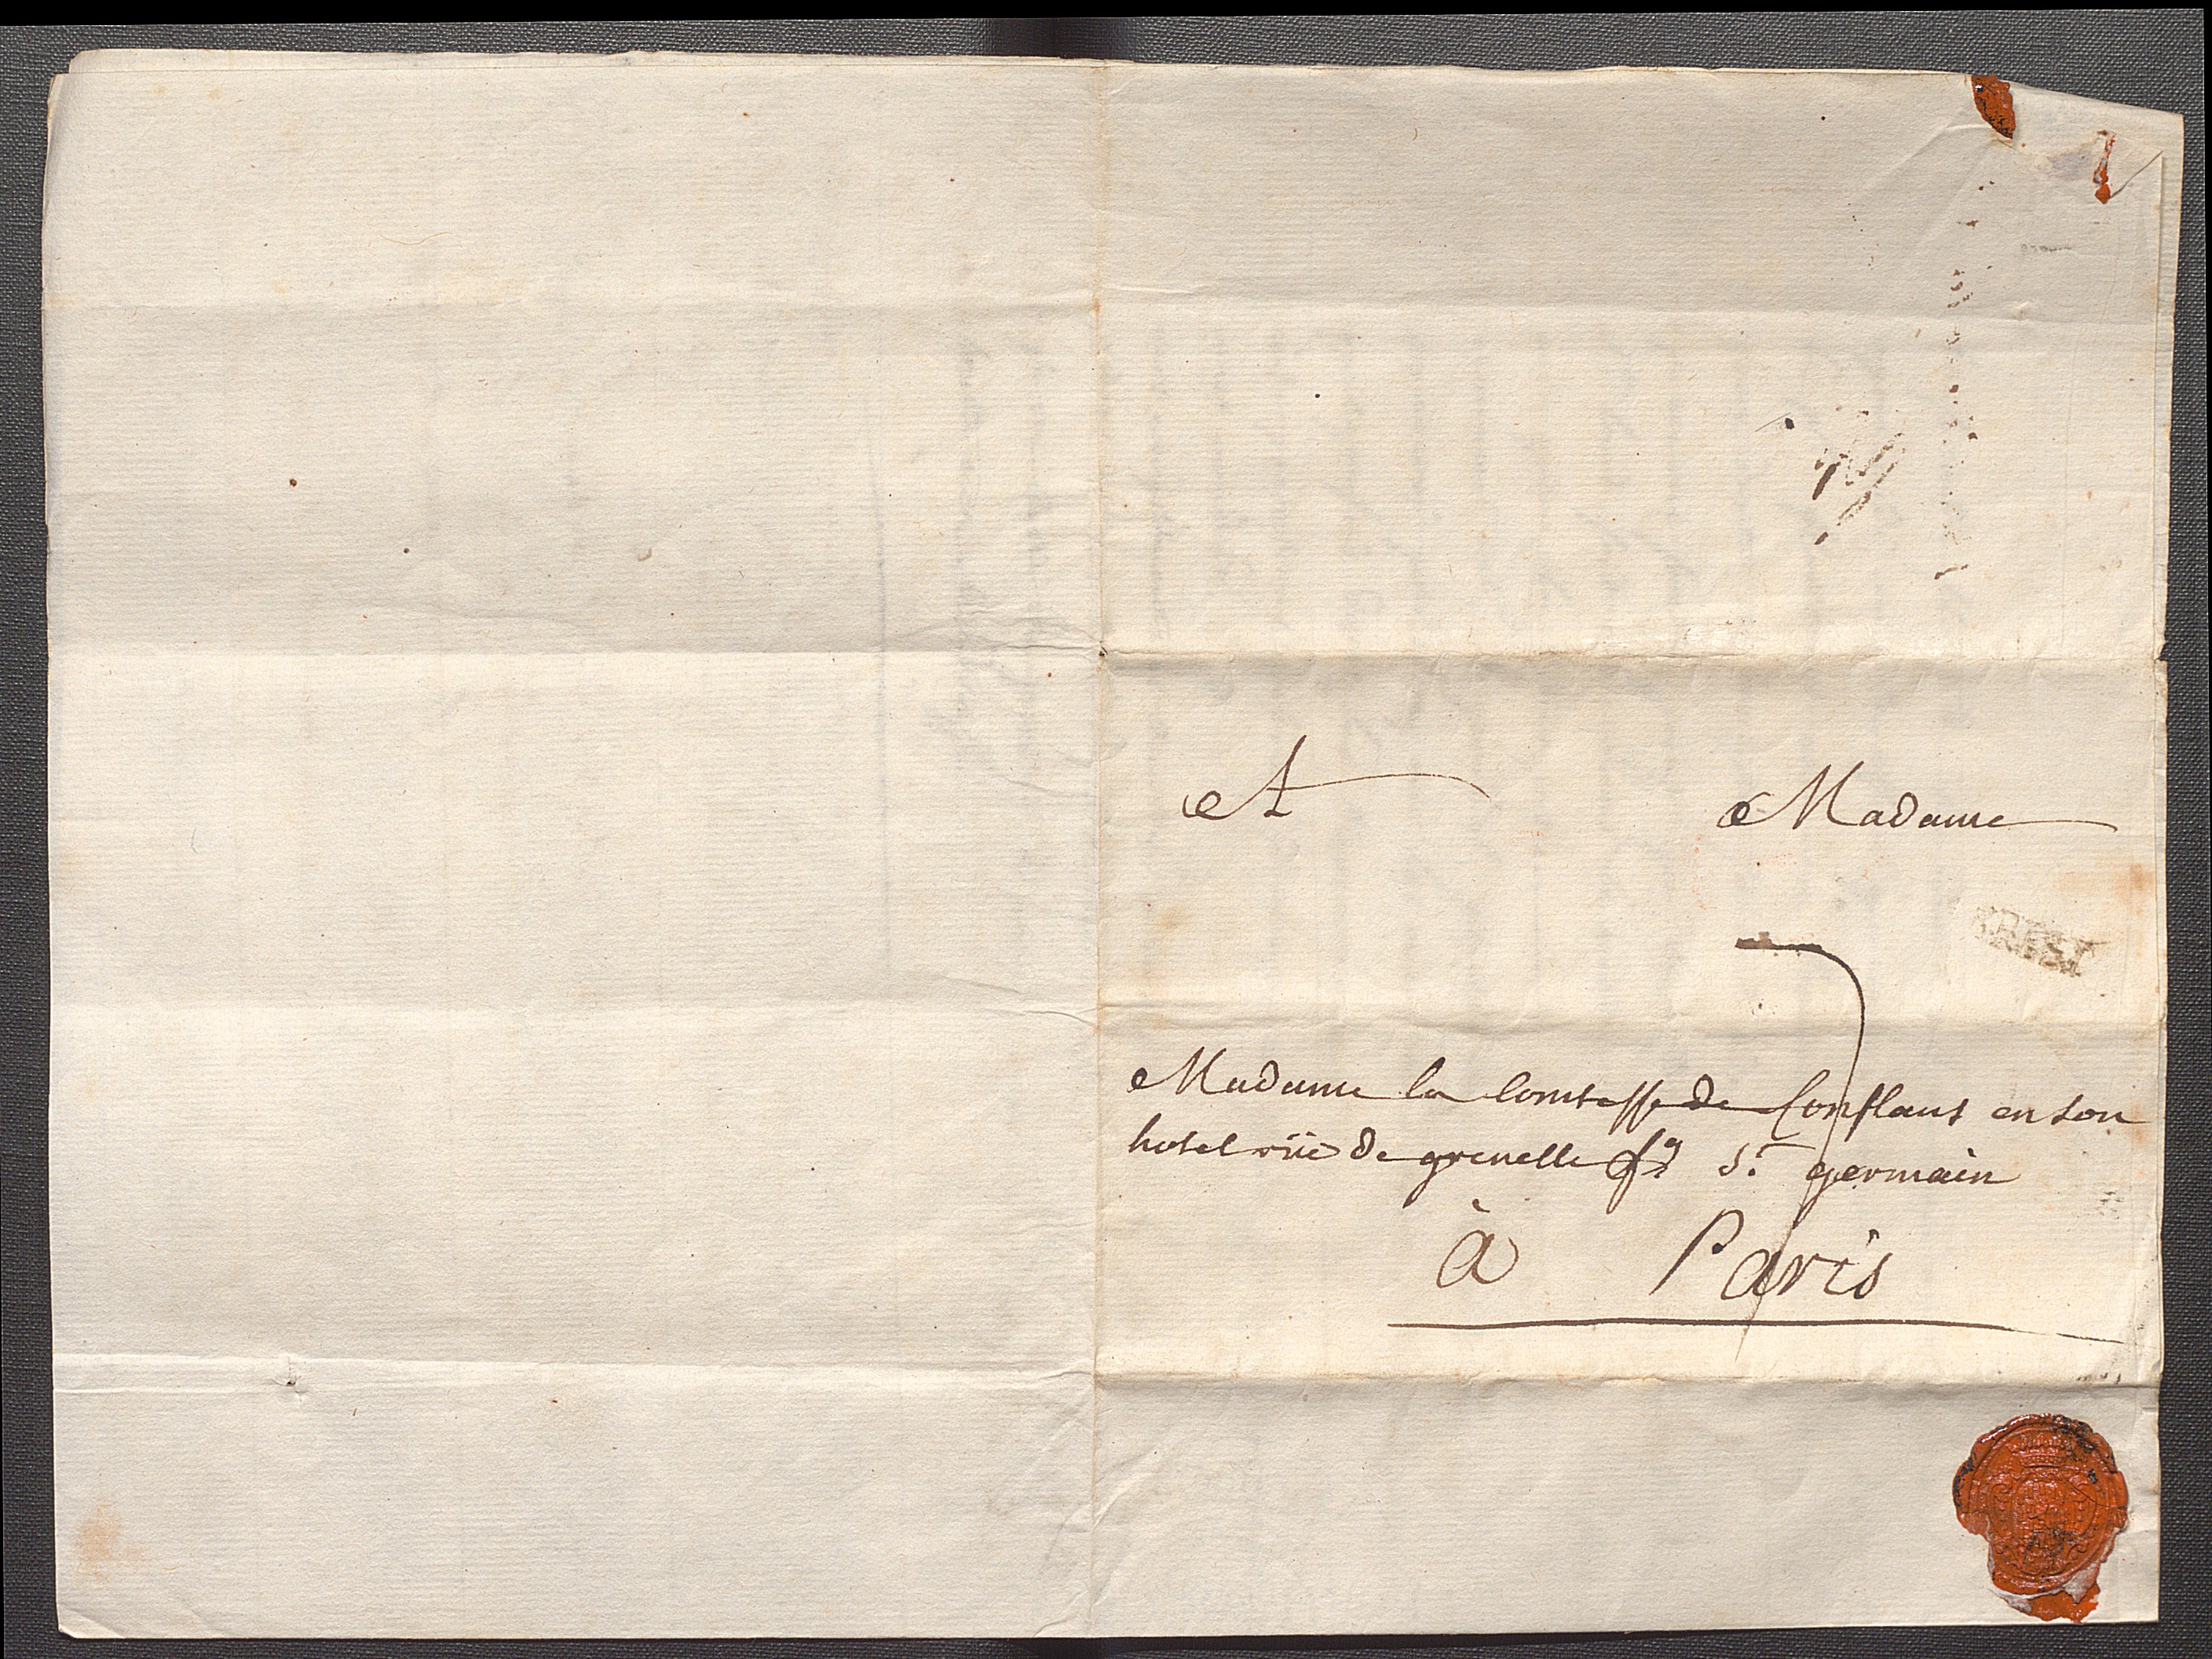 A Madame
BREST
7
Madame la Comtesse de Conflans en son
hotel rüe de grenelle fg St germain
à Paris